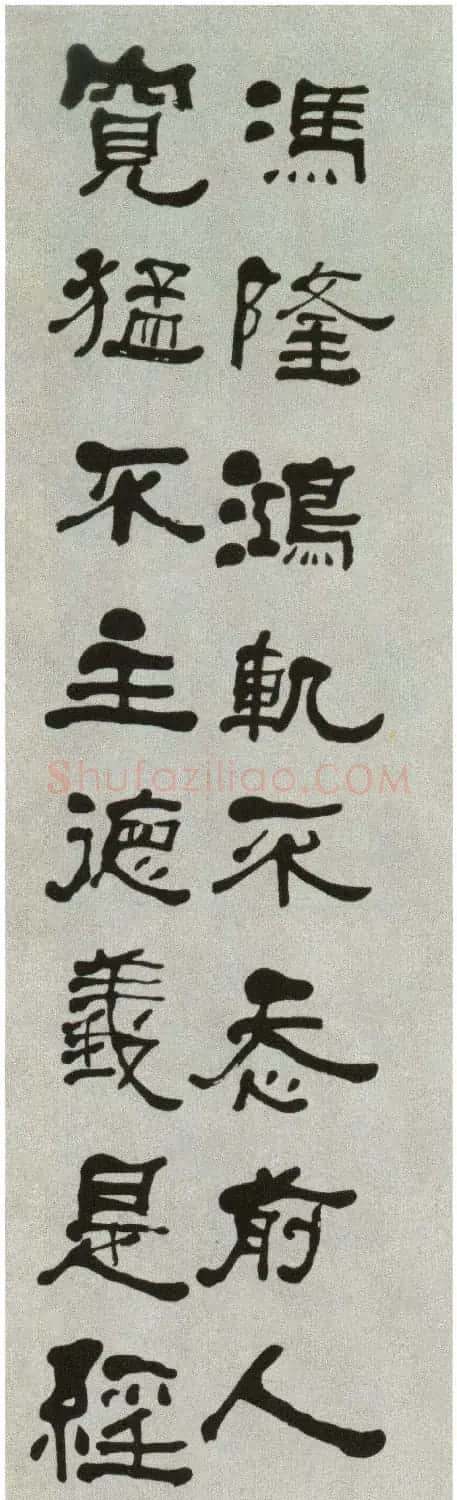 馮隆鴻軌不忝前人
寬猛不主德義是經
Shufaziliao.COM